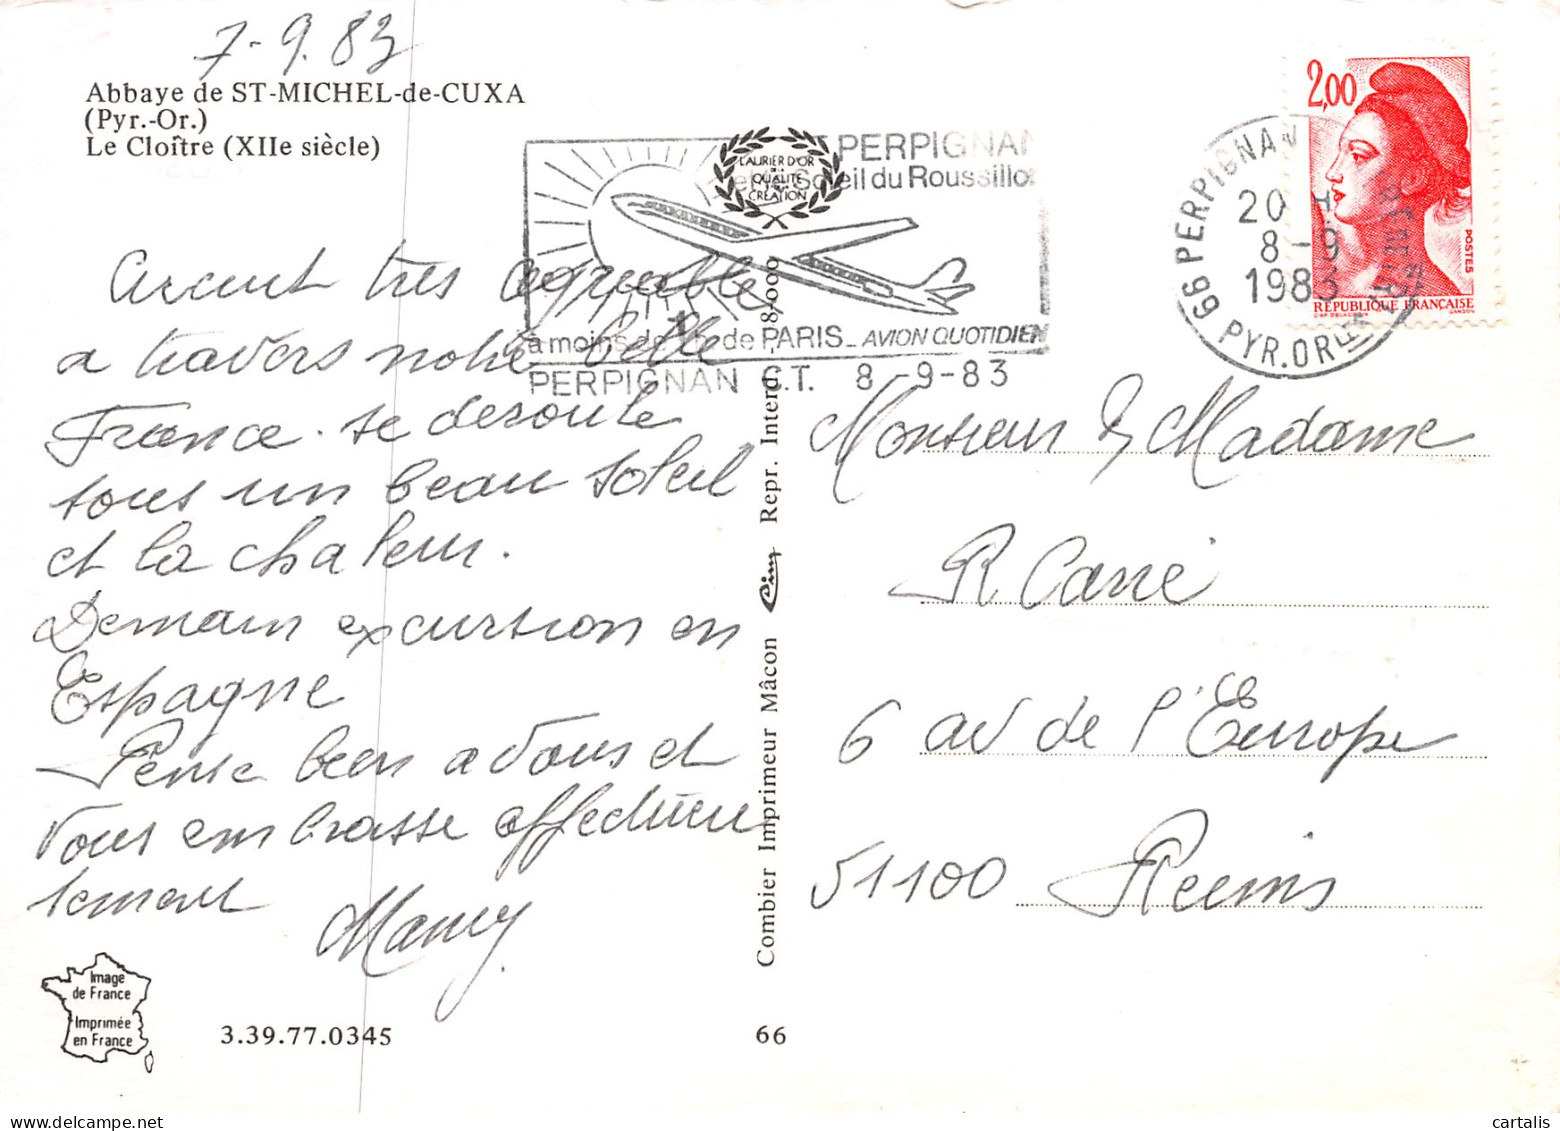 7-9.83
Abbaye de ST-MICHEL-de-CUXA
(Pyr.-Or.)
Le Cloître (XIIe siècle)
très agreable
a travers notre belle
France. se deroule
sous un beau soleil
et la chaleur.
Demain excursion en
Espagne
Pense bien a vous et
vous embrasse affectueu
sement
Mamy
Image
de France
Imprimée
en France
3.39.77.0345
PERPIGNAN
Soleil du Roussillon
LAURIER D'OR
QUALITE
CREATION
à moins de de PARIS_AVION QUOTIDIEN
PERPIGNAN C.T. 8-9-83
Combier Imprimeur Mâcon Cim Repr. Interd. 8.000
66
66 PERPIGNAN
20 H
8-9
1983
PYR.OR
2,00
POSTES
RÉPUBLIQUE FRANÇAISE
GANDON
Monsieur & Madame
R. Carré
6 av de l'Europe
51100 Reims
cartalis